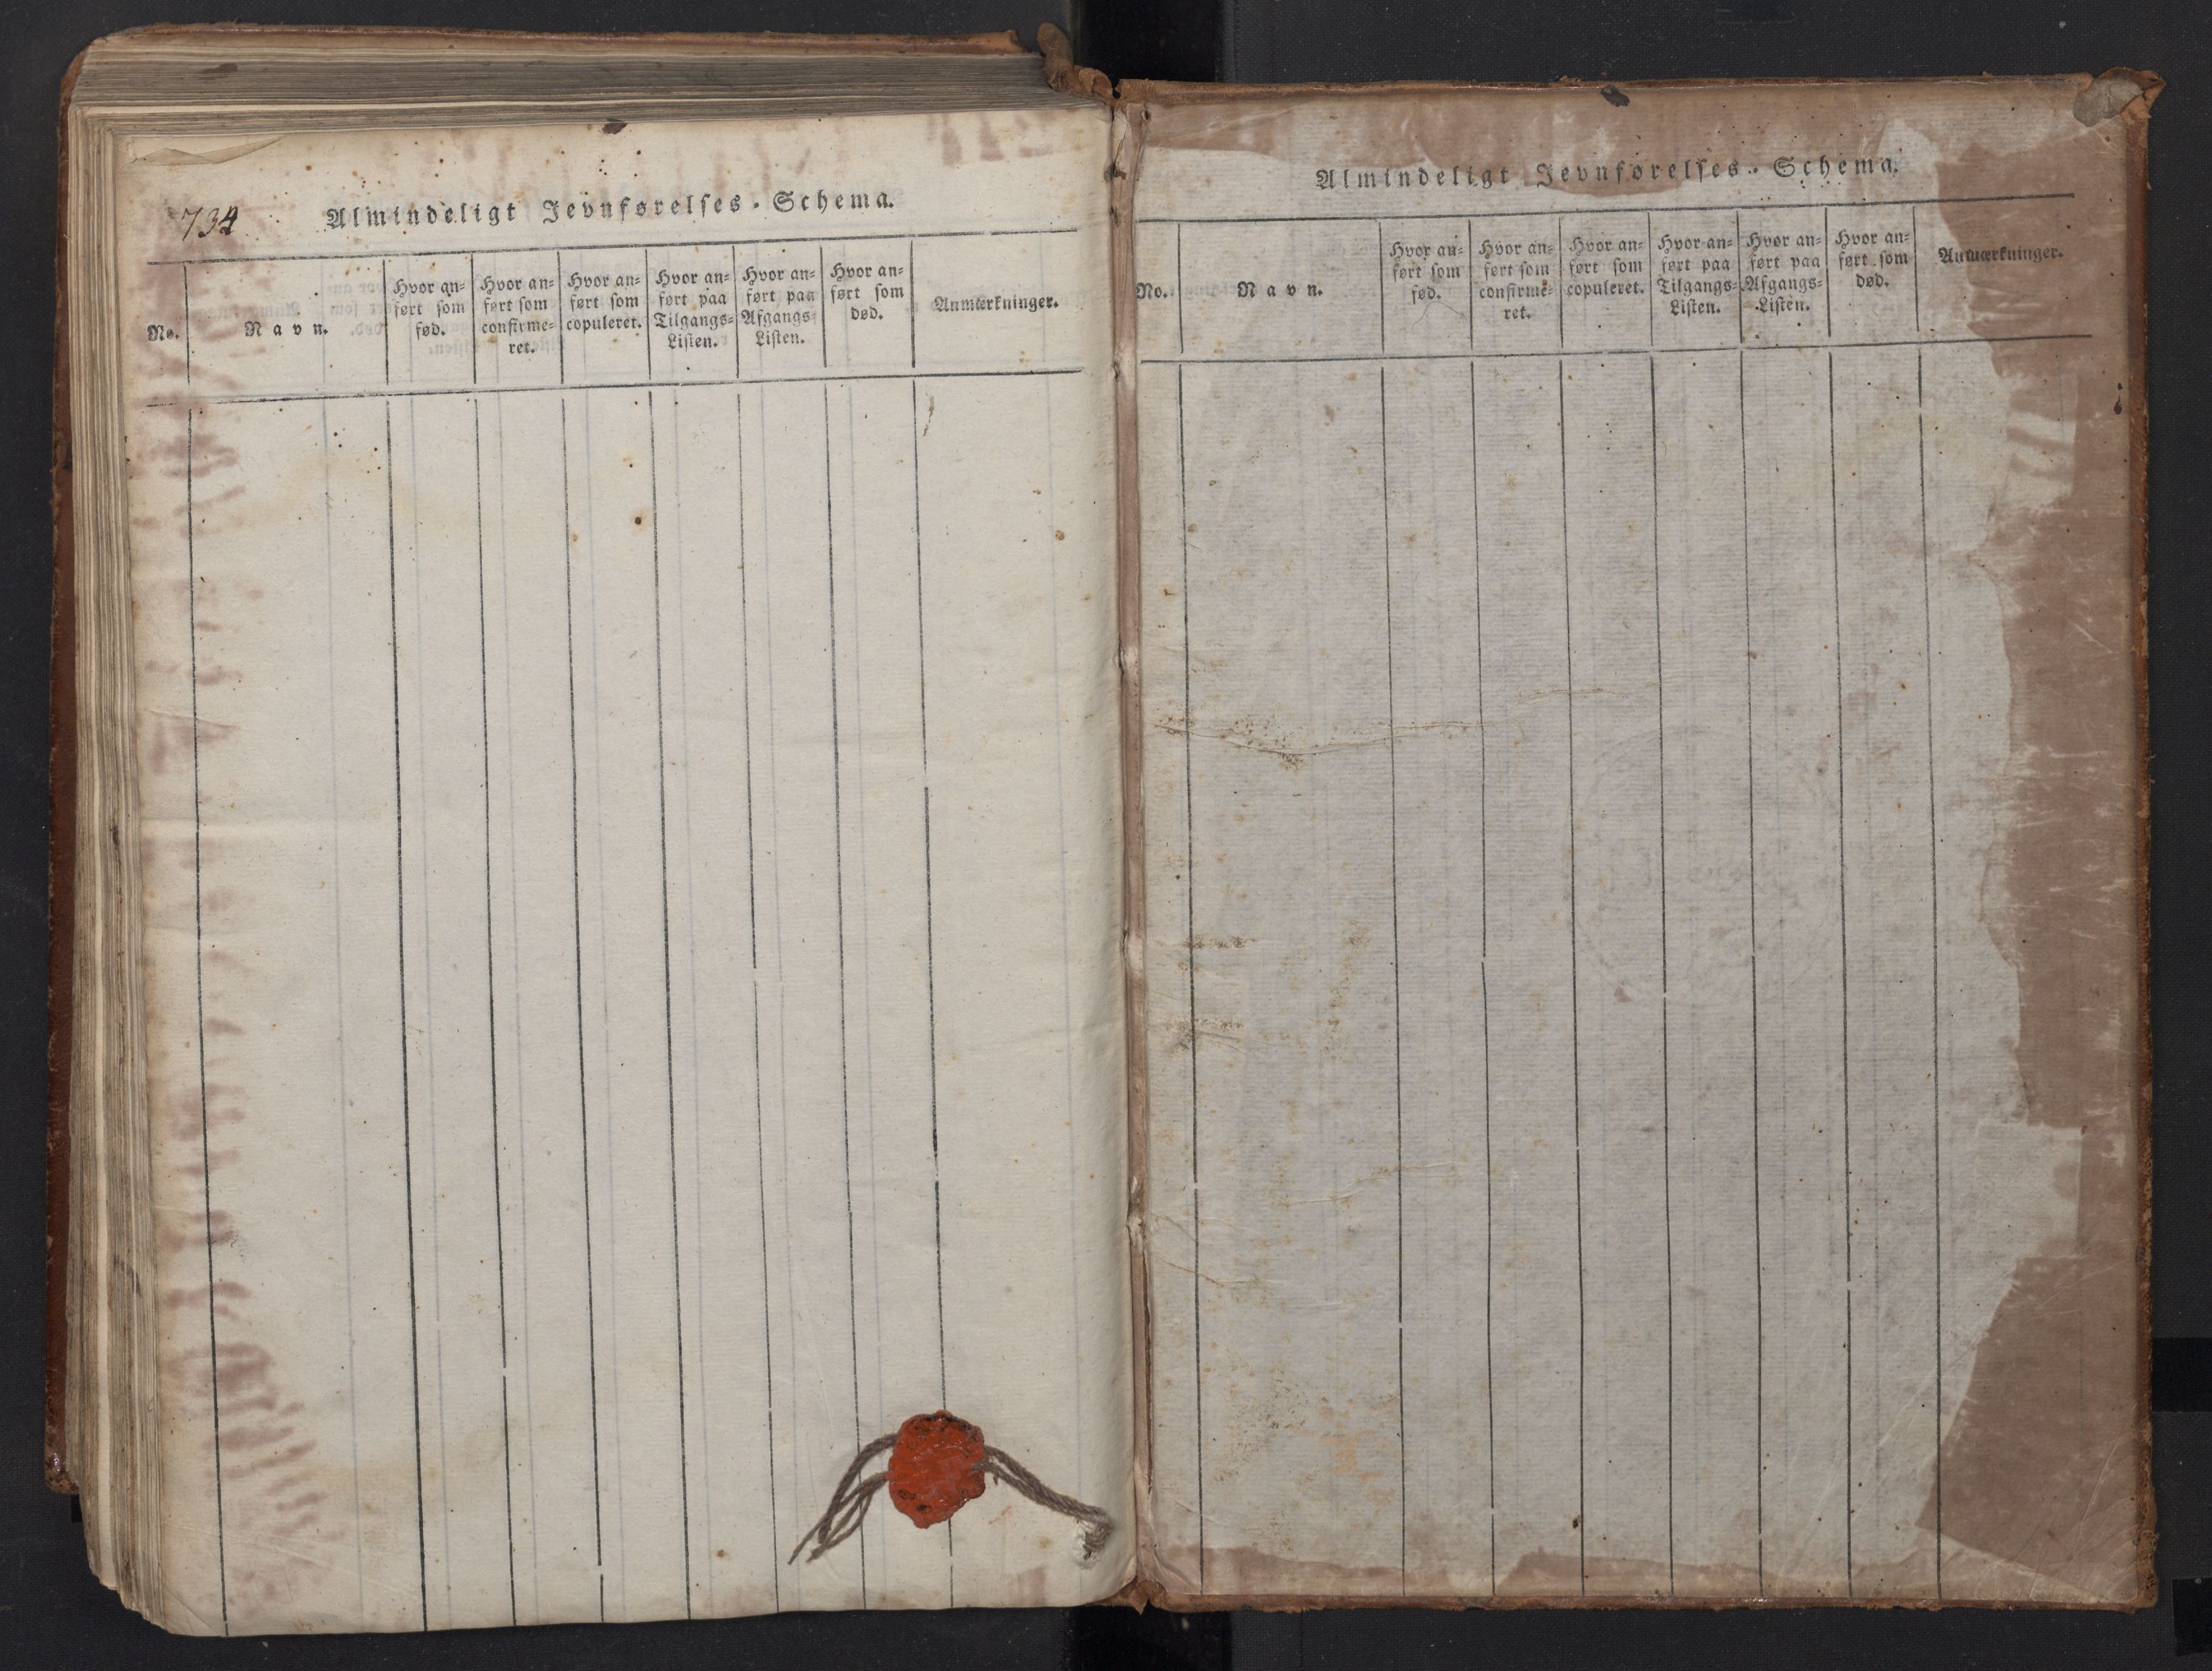 734
Almindeligt Jevnførelses-Schema.
No.
Navn.
Hvor an-
ført som
fød.
Hvor an-
ført som
confirme-
ret.
Hvor an-
ført som
copuleret.
Hvor an-
ført paa
Tilgangs-
Listen.
Hvor an-
ført paa
Afgangs-
Listen.
Hvor an-
ført som
død.
Anmærkninger.
Almindeligt Jevnførelses-Schema.
No.
Navn.
Hvor an-
ført som
fød.
Hvor an-
ført som
confirme-
ret.
Hvor an-
ført som
copuleret.
Hvor an-
ført paa
Tilgangs-
Listen.
Hvor an-
ført paa
Afgangs-
Listen.
Hvor an-
ført som
død.
Anmærkninger.